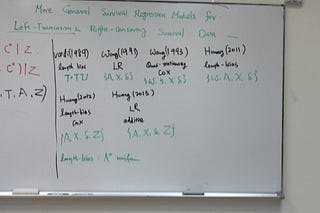 More General Survival Regression Models for
Left-Truncated & Right-censoring Survival Data
C* | Z
C*) | Z
T, A, Z)
Vardi (1989) Wang (1991) Wang (1993) Huang (2011)
length bias LR Quasi-stationary length-bias
Cox
{A, X, δ} {W, X, δ} {W, A, X, δ}
Huang (2012) Huang (2013)
length-bias LR
Cox additive
{A, X, δ, Z} {A, X, δ, Z}
length-bias : A* uniform